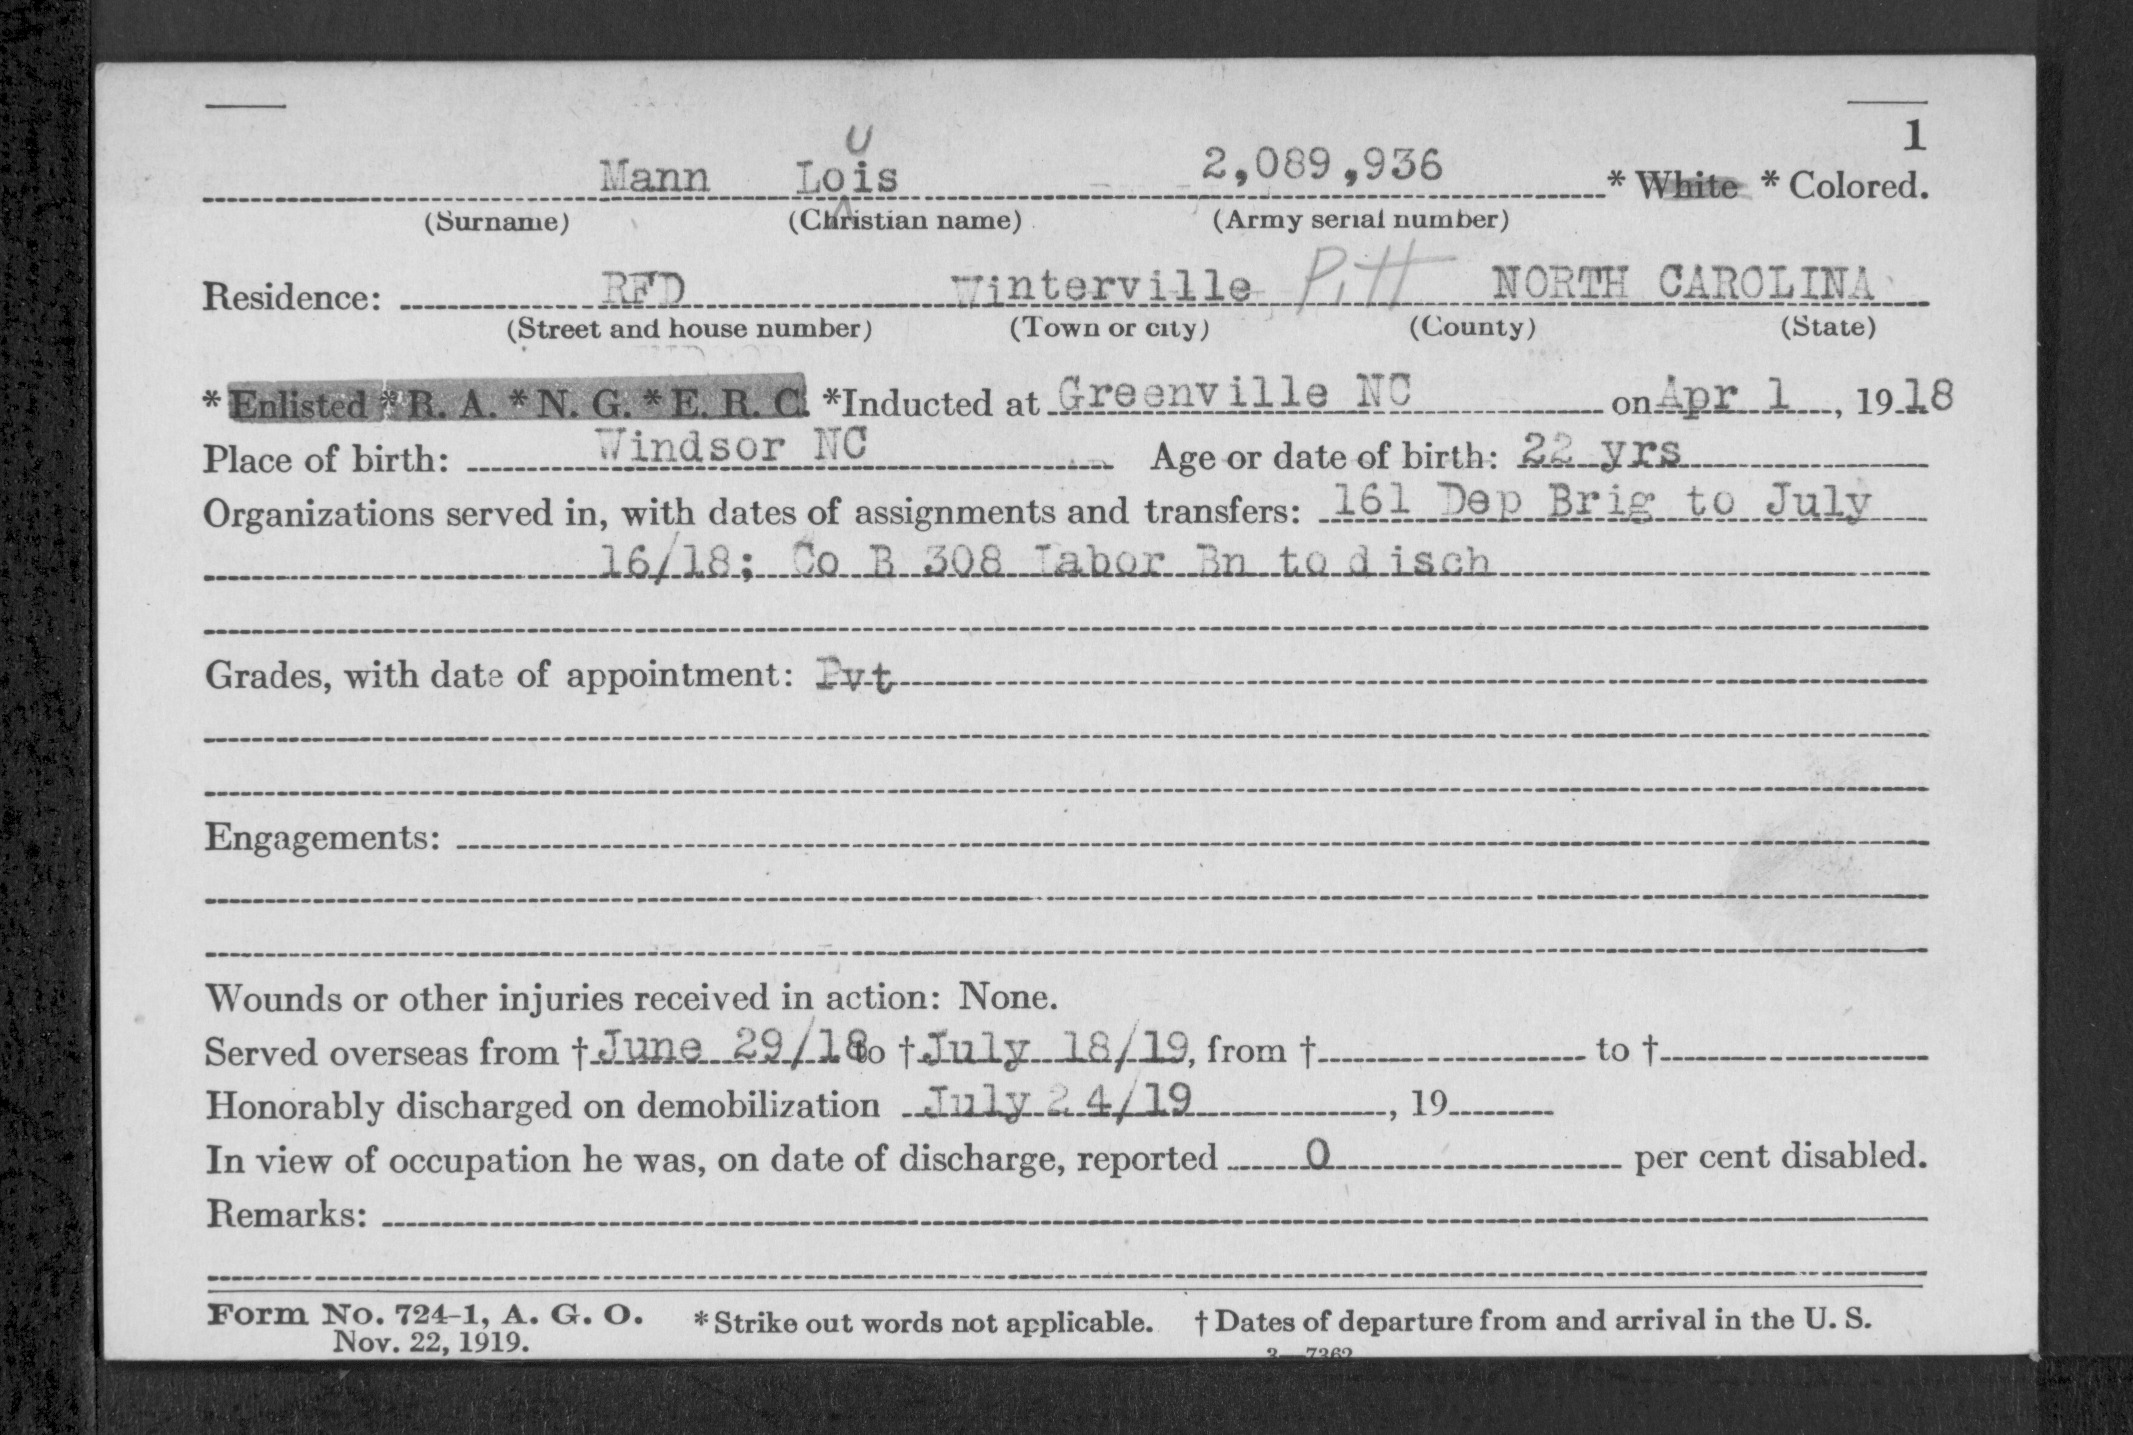 1
U
Mann Lois 2,089,936 * White * Colored.
(Surname) (Christian name) (Army serial number)
Residence: RFD Winterville Pitt NORTH CAROLINA
(Street and house number) (Town or city) (County) (State)
* Enlisted * R. A. * N. G. * E. R. C. *Inducted at Greenville NC on Apr 1, 1918
Place of birth: Windsor NC Age or date of birth: 22 yrs
Organizations served in, with dates of assignments and transfers: 161 Dep Brig to July
16/18; Co B 308 Labor Bn to d isch
Grades, with date of appointment: Pvt
Engagements:
Wounds or other injuries received in action: None.
Served overseas from † June 29/18 to † July 18/19, from † to †
Honorably discharged on demobilization July 24/19, 19
In view of occupation he was, on date of discharge, reported 0 per cent disabled.
Remarks:
Form No. 724-1, A. G. O. * Strike out words not applicable. † Dates of departure from and arrival in the U. S.
Nov. 22, 1919. 3—7362